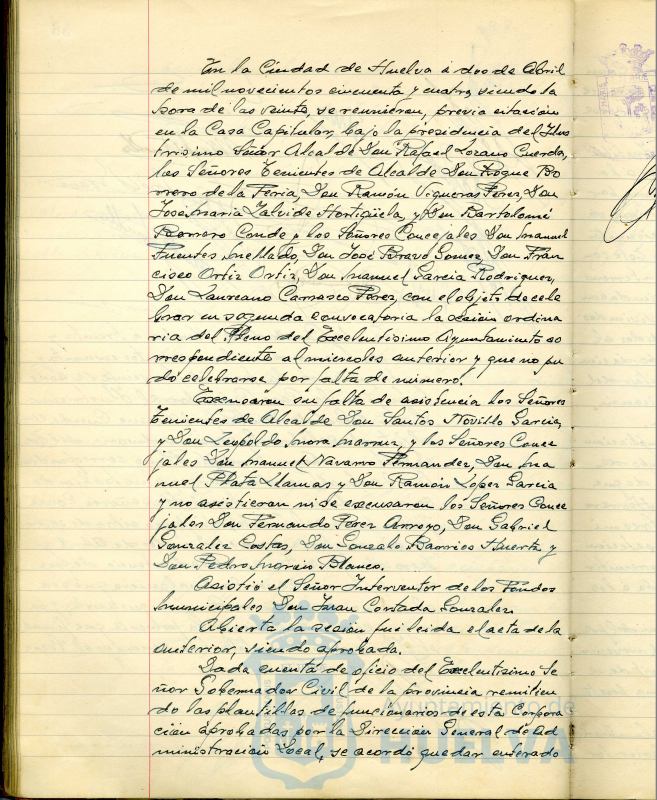 En la Ciudad de Huelva á dos de Abril
de mil novecientos cincuenta y cuatro, siendo la
hora de las veinte, se reunieron, previa citación
en la Casa Capitular, bajo la presidencia del Ilus
trisimo Señor Alcalde Don Rafael Lozano Cuerda,
los Señores Tenientes de Alcalde Don Roque Bo
rrero de la Feria, Don Ramón Vigueras Perez, Don
José Maria Zalvide Hortigüela, y Don Bartolomé
Borrero Conde y los Señores Concejales Don Manuel
Fuentes Mellado, Don José Bravo Gomez, Don Fran
cisco Ortiz Ortiz, Don Manuel Garcia Rodriguez,
Don Laureano Carrasco Perez, con el objeto de cele
brar en segunda convocatoria la sesión ordina
ria del Pleno del Excelentisimo Ayuntamiento co
rrespondiente al miercoles anterior y que no pu
do celebrarse por falta de número.
Excusaron su falta de asistencia los Señores
Tenientes de Alcalde Don Santos Novillo Garcia,
y Don Leopoldo Mora y los Señores Conce
jales Don Manuel Navarro Fernandez, Don Ma
nuel Plata Llamas y Don Ramón López Garcia
y no asistieron ni se excusaron los Señores Conce
jales Don Fernando Perez Arroyo, Don Gabriel
Gonzalez Costas, Don Gonzalo Barrios Huerta y
Don Pedro Blanco.
Asistió el Señor Interventor de los Fondos
Municipales Don Juan Cortada Gonzalez.
Abierta la sesión fué leida el acta de la
anterior, siendo aprobada.
Dada cuenta de oficio del Excelentisimo Se
ñor Gobernador Civil de la provincia remitien
do las plantillas de funcionarios de esta Corpora
ción aprobadas por la Dirección General de Ad
ministración Local, se acordó quedar enterado
Ayuntamiento de
HUELVA